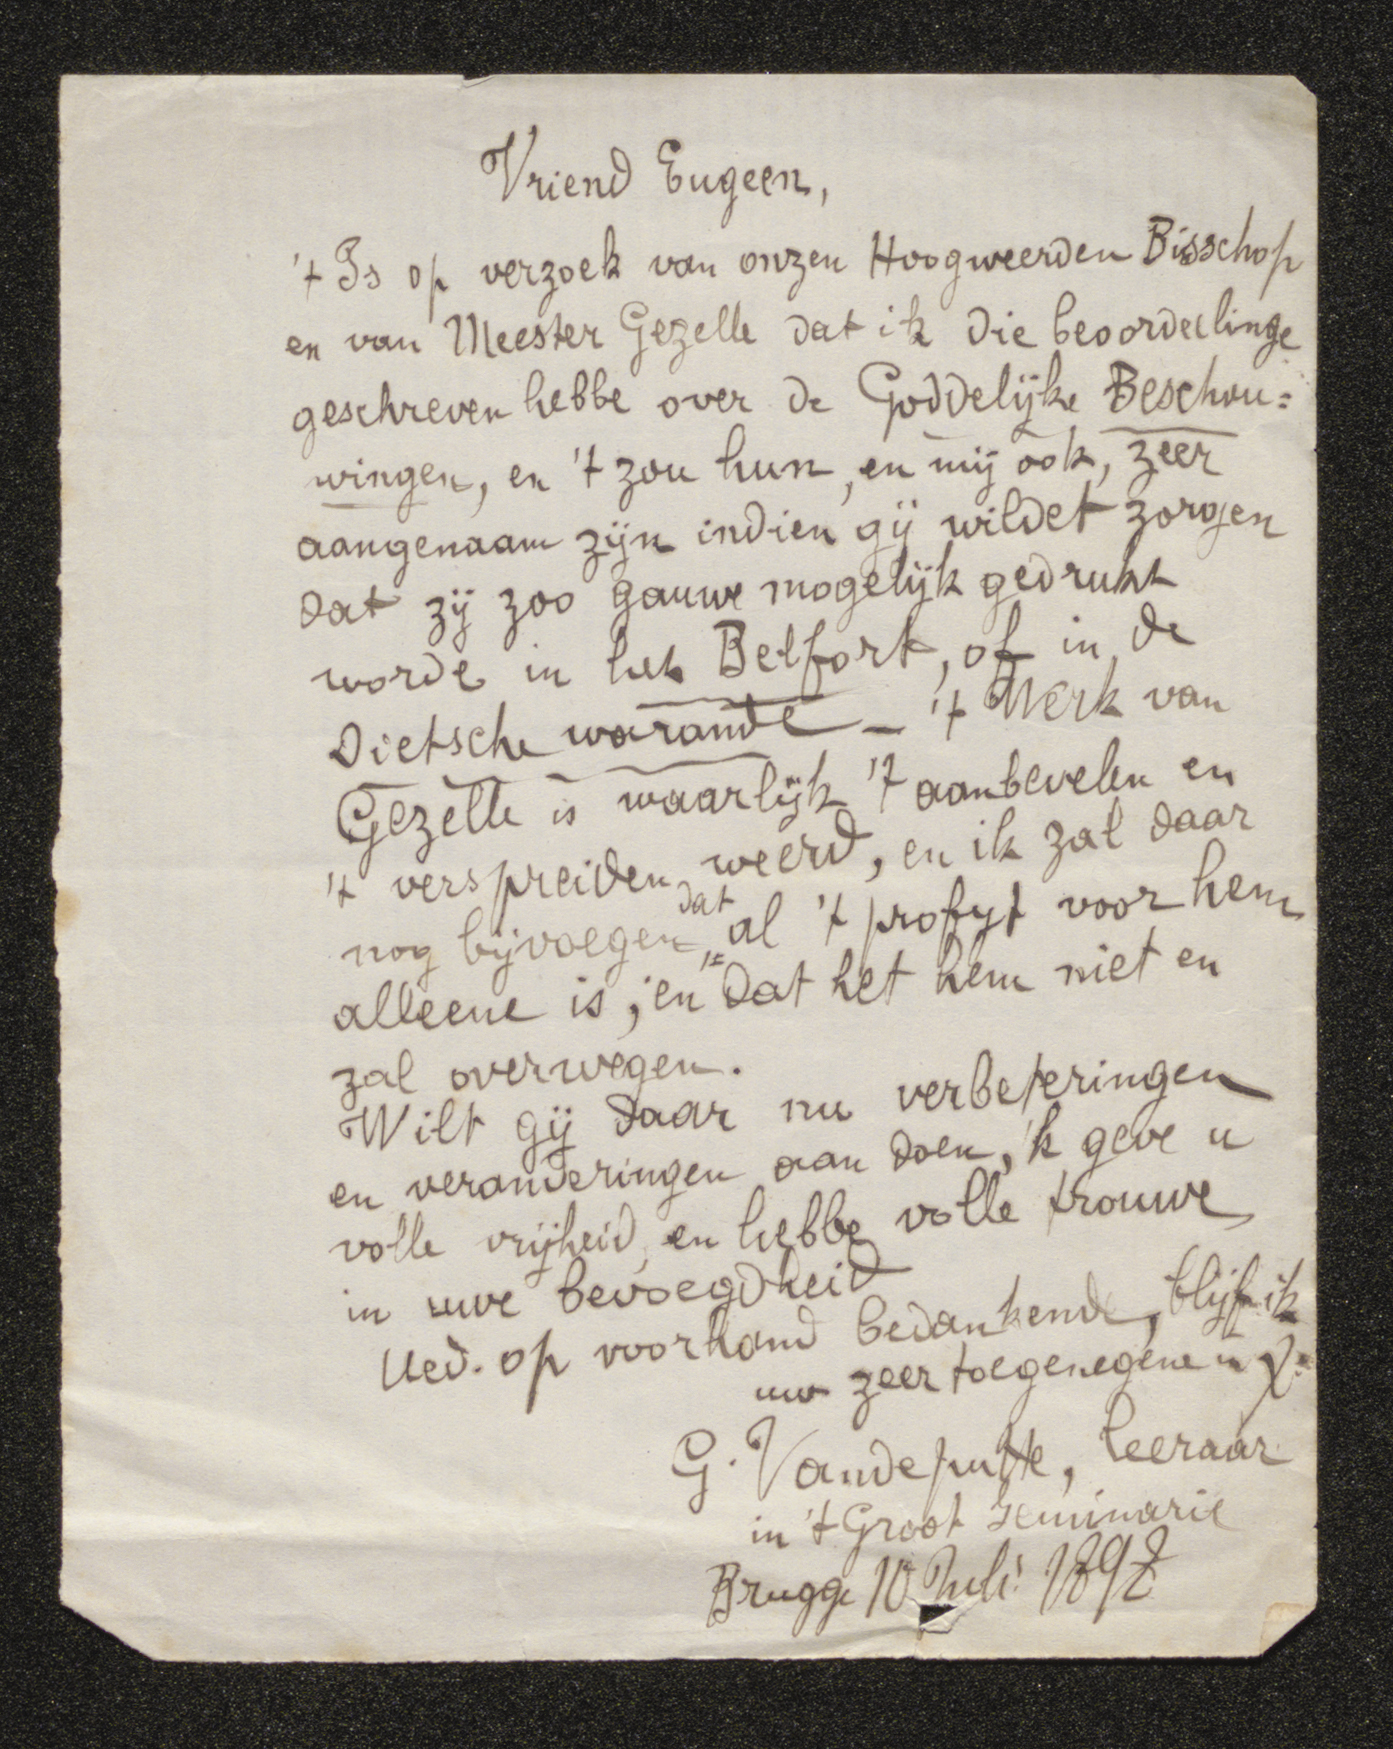 Vriend Eugeen,
't Is op verzoek van onzen Hoogweerden Bisschop
en van Meester Gezelle dat ik die beoordeelinge
geschreven hebbe over de Goddelijke Beschou=
wingen, en 't zou hun, en mij ook, zeer
aangenaam zijn indien gij wildet zorgen
dat zij zoo gauwe mogelijk gedrukt
worde in het Belfort, of in de
Dietsche warande – 't Werk van
Gezelle is waarlijk 't aanbevelen en
't verspreiden weerd, en ik zal daar
nog bijvoegen dat al 't profyt voor hem
alleene is; en dat het hem niet en
zal overwegen.
Wilt gij daar nu verbeteringen
en veranderingen aan doen, 'k geve u
volle vrijheid, en hebbe volle trouwe
in uwe bevoegdheid
Ued. op voorhand bedankende, blijf ik
uw zeer toegenegene in X.
G. Vandeputte, leeraar
in 't Groot Seminarie
Brugge 10 Juli 1897